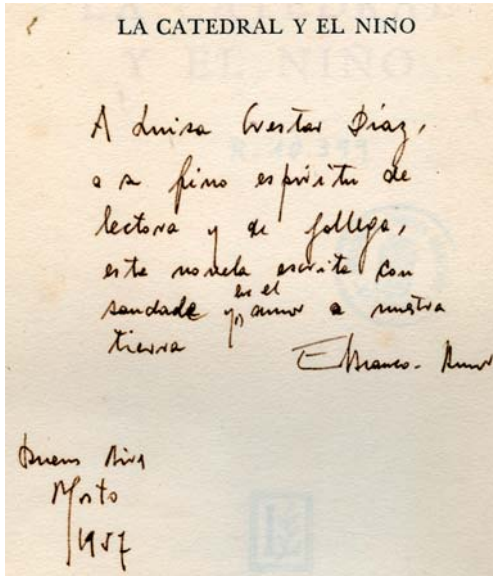 LA CATEDRAL Y EL NIÑO
A Luisa Crestar Díaz,
a su fino espíritu de
lectora y de gallega,
esta novela escrita con
saudade y en el amor a nuestra
tierra
EBlanco-Amor
Buenos Aires
Agosto
1957